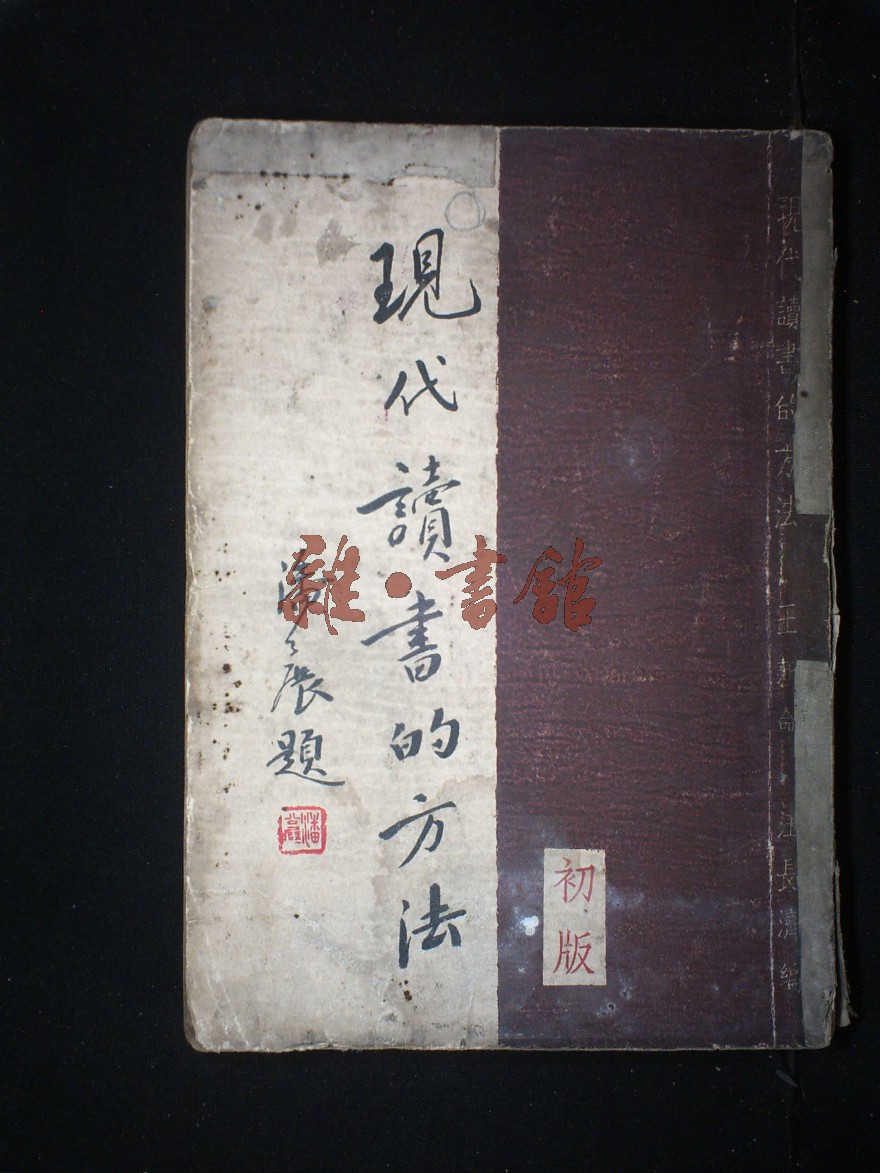 現代讀書的方法 王新命 汪長濟編
初版
現代讀書的方法
潘公展題
雜·書館